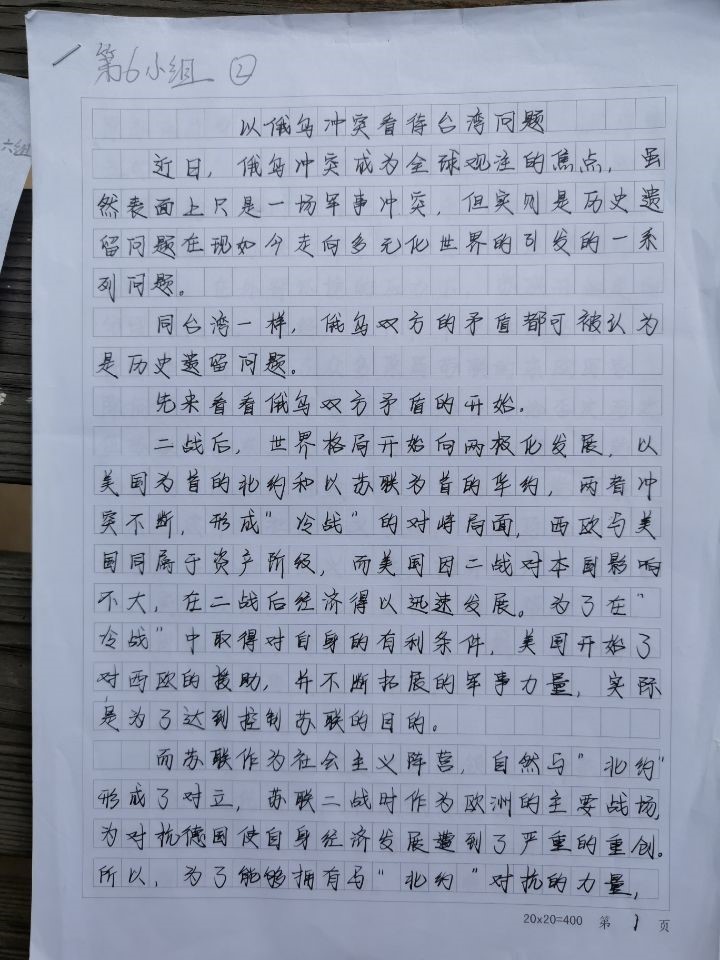 第6小组 ②
六组
以俄乌冲突看待台湾问题
近日，俄乌冲突成为全球观注的焦点，虽
然表面上只是一场军事冲突，但实则是历史遗
留问题在现如今走向多元化世界的引发的一系
列问题。
同台湾一样，俄乌双方的矛盾都可被认为
是历史遗留问题。
先来看看俄乌双方矛盾的开始。
二战后，世界格局开始向两极化发展，以
美国为首的北约和以苏联为首的华约，两者冲
突不断，形成“冷战”的对峙局面，西欧与美
国同属于资产阶级，而美国因二战对本国影响
不大，在二战后经济得以迅速发展。为了在“
冷战”中取得对自身的有利条件，美国开始了
对西欧的援助，并不断拓展的军事力量，实际
是为了达到控制苏联的目的。
而苏联作为社会主义阵营，自然与“北约”
形成了对立，苏联二战时作为欧洲的主要战场，
为对抗德国使自身经济发展遭到了严重的重创。
所以，为了能够拥有与“北约”对抗的力量，
20x20=400 第 1 页